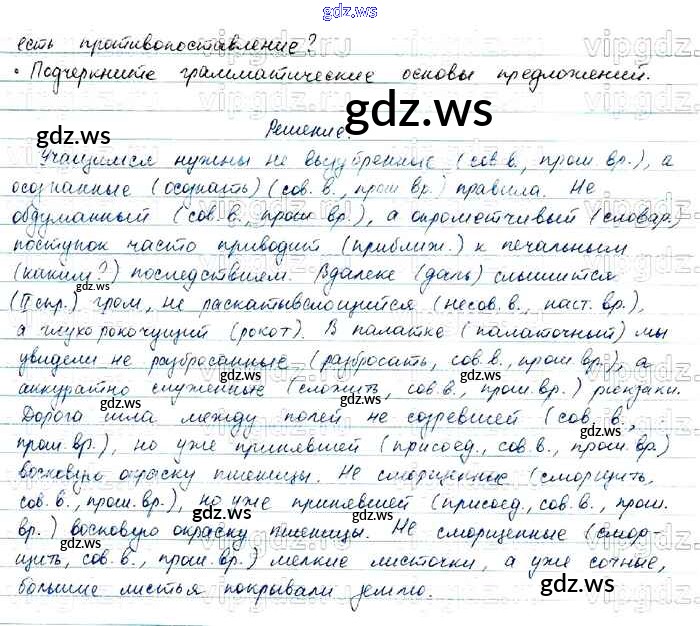 gdz.ws
есть противопоставление?
• Подчеркните грамматические основы предложений.
gdz.ws
Решение.
gdz.ws
Учащимся нужны не вызубренные (сов.в., прош.вр.), а
осознанные (осознать) (сов.в., прош вр.) правила. Не
gdz.ws
обдуманный (сов.в., прош.вр.), а опрометчивый (словар.)
поступок часто приводит (приближ.) к печальным
(каким?) последствиям. Вдалеке (даль) слышится
gdz.ws
(II спр.) гром, не раскатывающийся (несов.в., наст.вр.),
а глухо рокочущий (рокот). В палатке (палаточный) мы
увидели не разбросанные (разбросать, сов.в., прош.вр.), а
gdz.ws
аккуратно сложенные (сложить, сов.в., прош.вр.) рюкзаки.
gdz.ws
Дорога шла между полей не созревшей (сов.в.,
gdz.ws
прош.вр.), но уже принявшей (присоед., сов.в., прош.вр.)
восковую окраску пшеницы. Не сморщенные (сморщить,
gdz.ws
сов.в., прош.вр.), но уже принявшей (присоед., сов.в., прош.
gdz.ws
вр.) восковую окраску пшеницы. Не сморщенные (смор-
gdz.ws
щить, сов.в., прош.вр.) мелкие листочки, а уже сочные,
gdz.ws
большие листья покрывали землю.